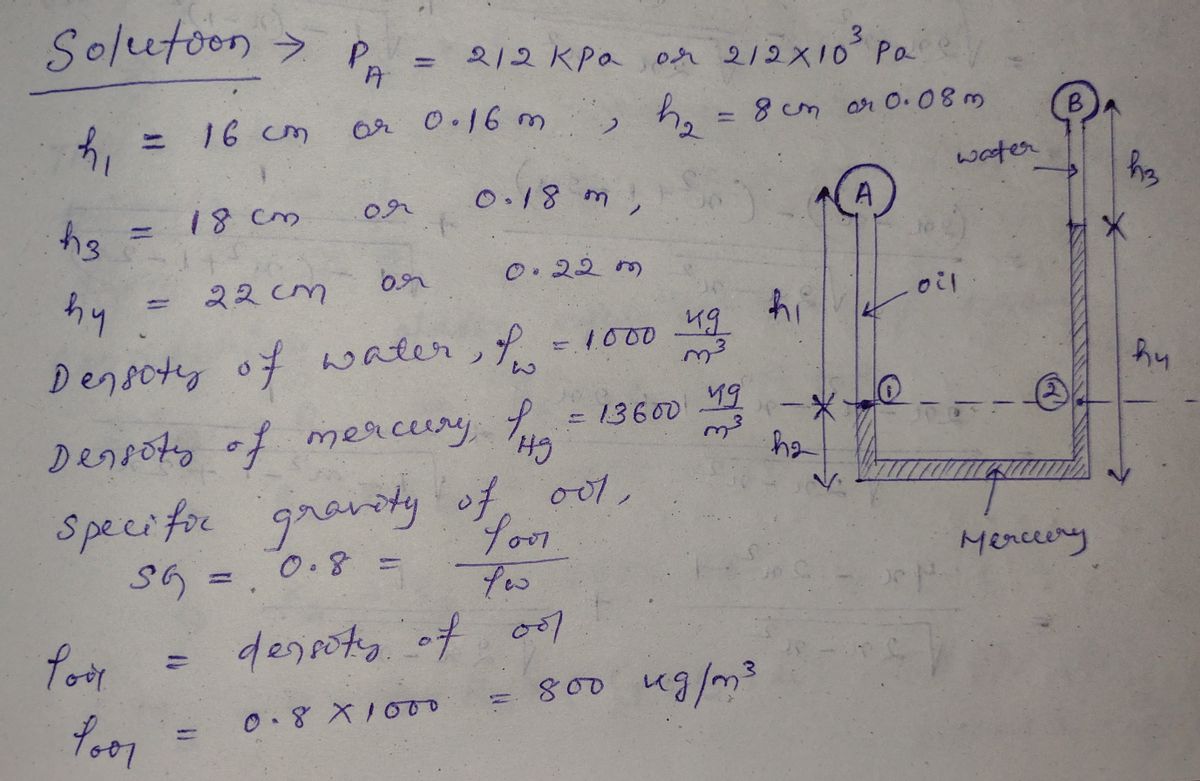 Solution → P_A = 212 KPa or 212×10³ Pa
h₁ = 16 cm or 0.16 m , h₂ = 8 cm or 0.08 m
h₃ = 18 cm or 0.18 m,
h₄ = 22 cm or 0.22 m
Density of water, ρ_w = 1000 kg/m³
Density of mercury, ρ_Hg = 13600 kg/m³
Specific gravity of oil,
SG = 0.8 = ρ_oil/ρ_w
ρ_oil = density of oil
ρ_oil = 0.8 × 1000 = 800 kg/m³
B
water
h₃
A
oil
h₁
h₄
①
②
h₂
Mercury